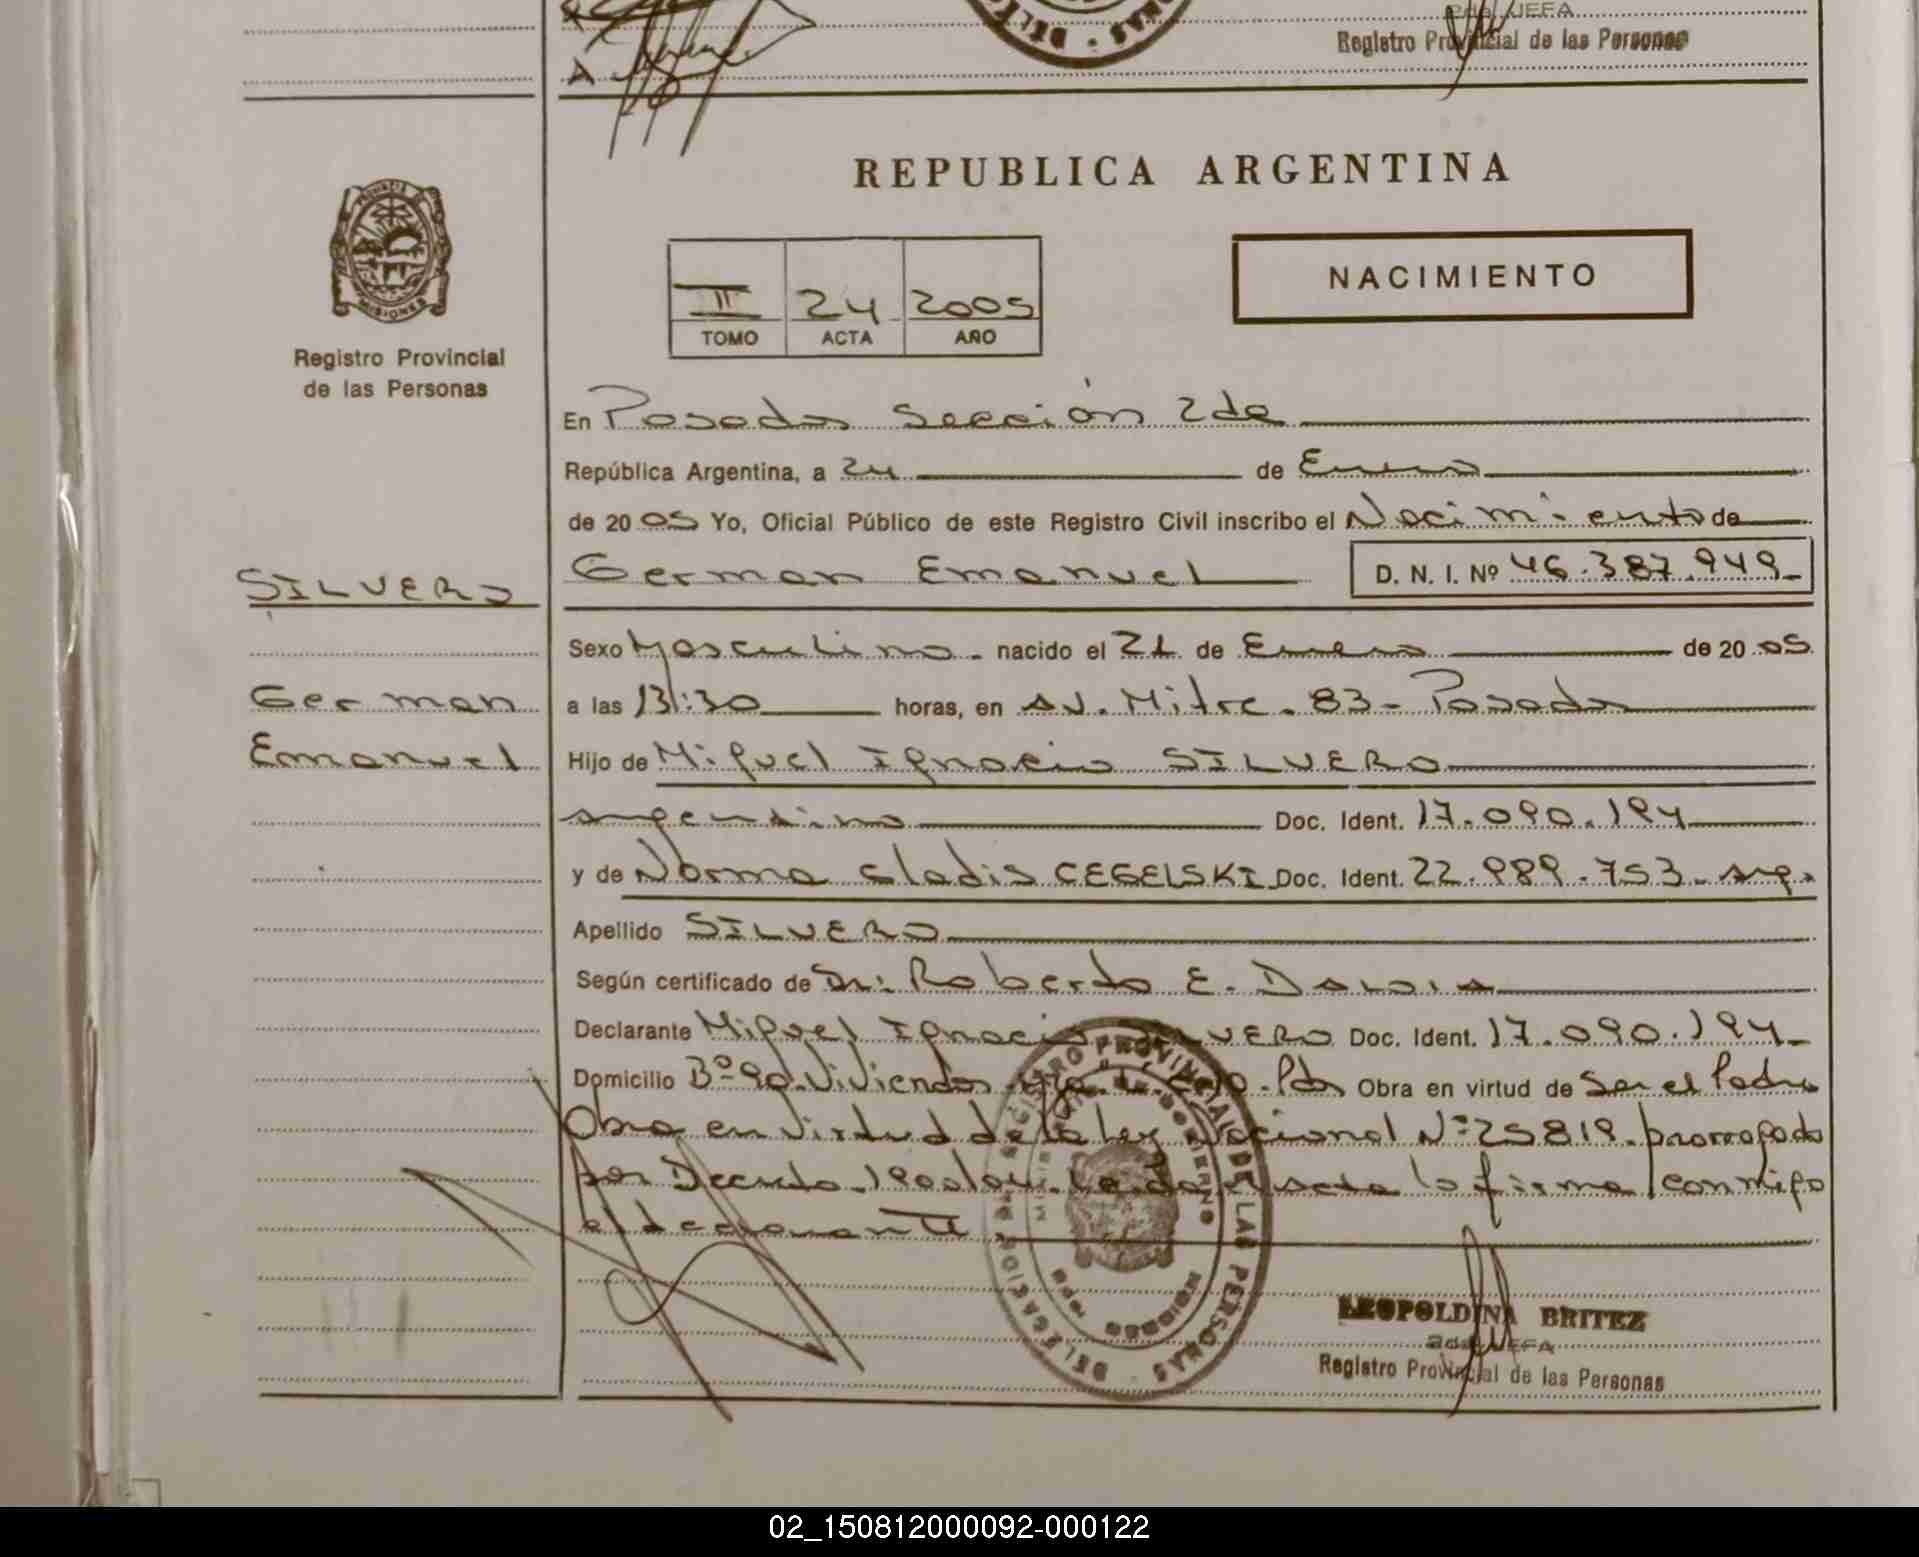 2da. JEFA
Registro Provincial de las Personas
REPUBLICA ARGENTINA
PROVINCIA DE
MISIONES
Registro Provincial
de las Personas
II 24 2005
TOMO ACTA AÑO
NACIMIENTO
En Posadas Sección 2da
República Argentina, a 24 de Enero
de 20 05 Yo, Oficial Público de este Registro Civil inscribo el Nacimiento de
SILVERO
German Emanuel D. N. I. Nº 46.387.949
Sexo Masculino. nacido el 21 de Enero de 20 05
German
Emanuel
a las 13:30 horas, en Av. Mitre. 83 - Posadas
Hijo de Miguel Ignacio SILVERO
argentino Doc. Ident. 17.090.194
y de Norma Gladis CEGELSKI Doc. Ident. 22.989.753 - arg.
Apellido SILVERO
Según certificado de Dr: Roberto E. DALOIA
Declarante Miguel Ignacio SILVERO Doc. Ident. 17.090.194
Domicilio Bº 90 Viviendas Pdas Obra en virtud de Ser el Padre
Obra en virtud de la Ley Nacional Nº 25819 - prorrogado
por Decreto Leída el acta la firma conmigo
el declarante
REGISTRO PROVINCIAL DE LAS PERSONAS
DELEGACION
LEOPOLDINA BRITEZ
2da. JEFA
Registro Provincial de las Personas
02_150812000092-000122